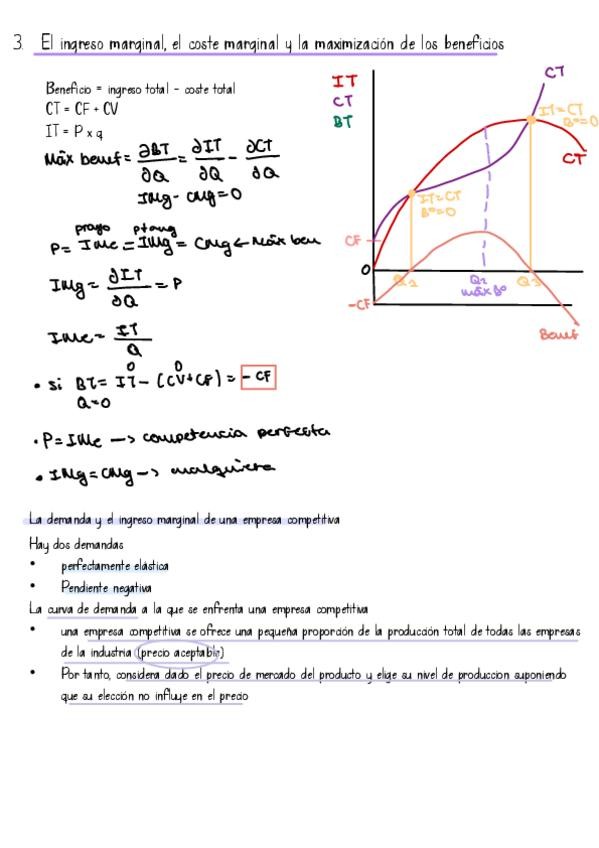 3. El ingreso marginal, el coste marginal y la maximización de los beneficios
Beneficio = ingreso total - coste total
CT = CF + CV
IT = P x q
Máx benef = ∂BT/∂Q = ∂IT/∂Q - ∂CT/∂Q
IMg - CMg = 0
P = IMe = IMg = CMg ← Máx ben
IMg = ∂IT/∂Q = P
IMe = IT/Q
• Si BT = IT - (CV + CF) = - CF
0 0
Q=0
• P = IMe —> competencia perfecta
• IMg = CMg —> cualquiera
IT
CT
BT
CT
IT=CT
Bº=0
CT
IT=CT
Bº=0
CF
0
Q1
Q2
máx Bº
Q3
-CF
Benef
La demanda y el ingreso marginal de una empresa competitiva
Hay dos demandas
• perfectamente elástica
• Pendiente negativa
La curva de demanda a la que se enfrenta una empresa competitiva
• una empresa competitiva se ofrece una pequeña proporción de la producción total de todas las empresas
de la industria (precio aceptable)
• Por tanto, considera dado el precio de mercado del producto y elige su nivel de produccion suponiendo
que su elección no influye en el precio